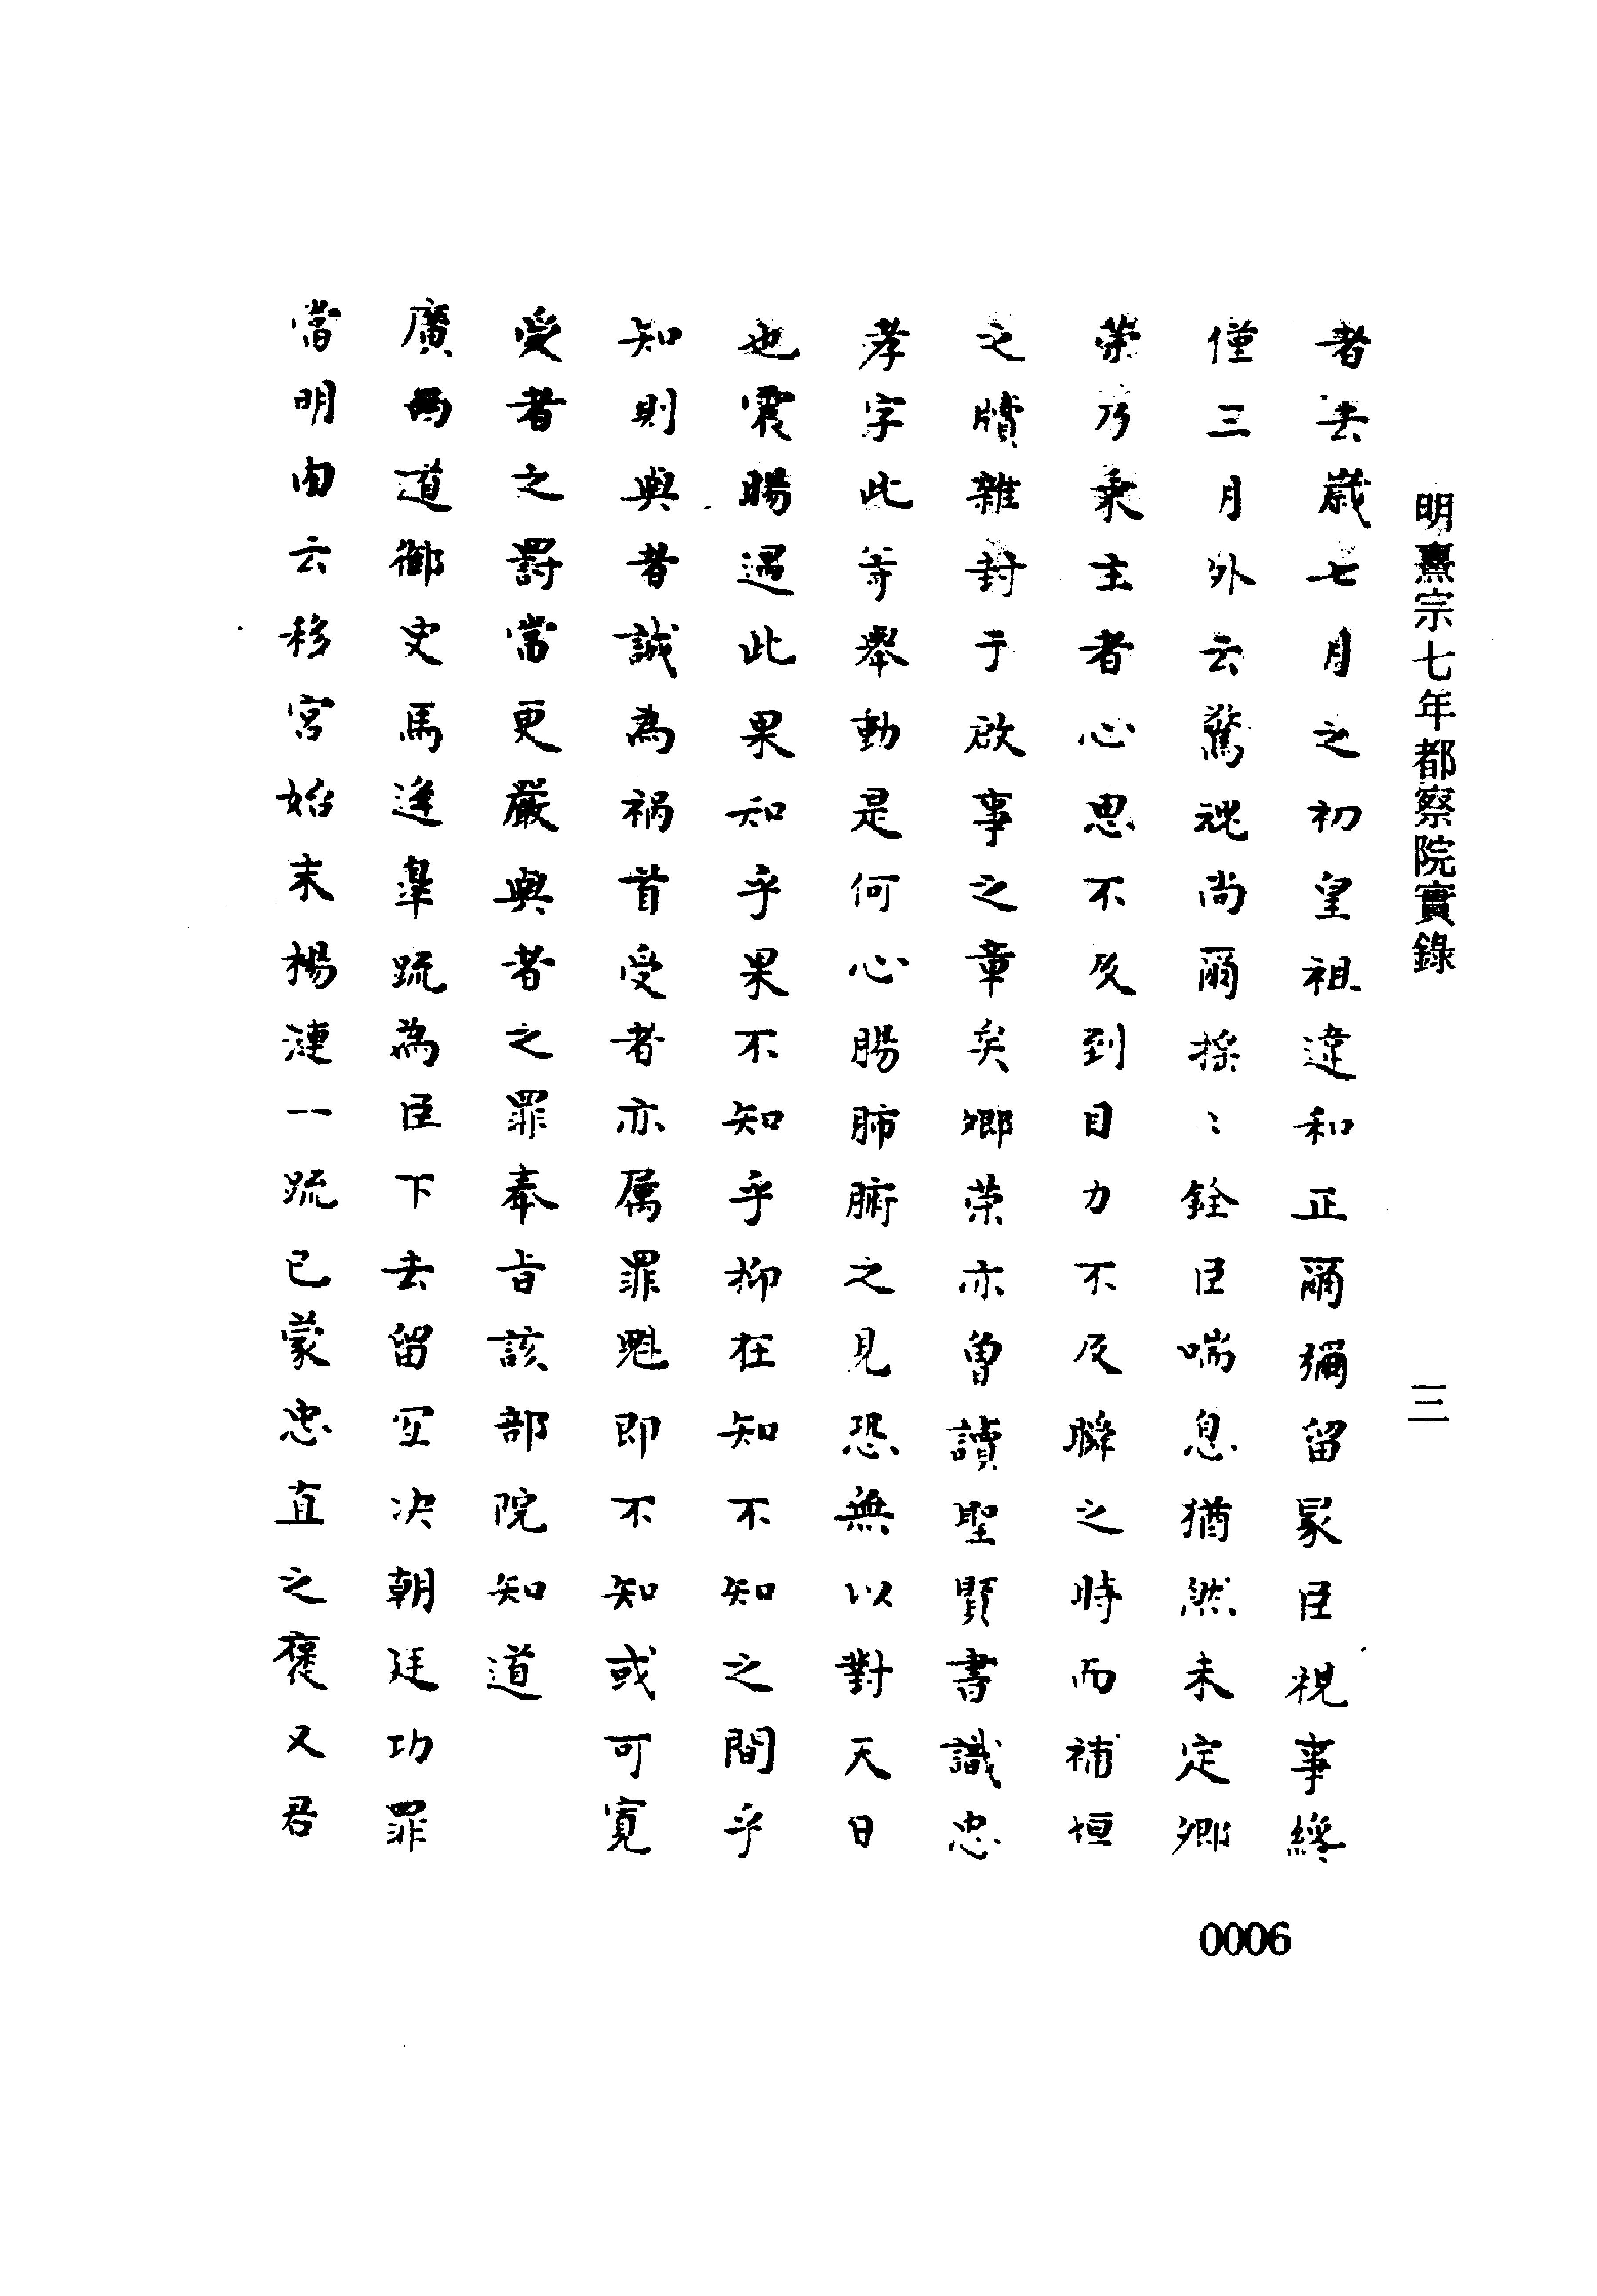 明熹宗七年都察院實錄
三
者去歲七月之初皇祖違和正爾彌留冡臣視事纔
僅三月外云驚魂尚爾搖〻銓臣喘息猶然未定卿
荣乃乘主者心思不及到目力不及瞬之時而補垣
之牘雜封于啟事之章矣卿荣亦曽讀聖賢書識忠
孝字此等舉動是何心腸肺腑之見恐無以對天日
也震暘遇此果知乎果不知乎抑在知不知之間乎
知則與者誠為禍首受者亦属罪魁即不知或可寛
受者之罸當更嚴與者之罪奉旨該部院知道
廣西道御史馬逄臯疏為臣下去留宜决朝廷功罪
當明内云移宮始末楊漣一疏已蒙忠直之褒又君
0006